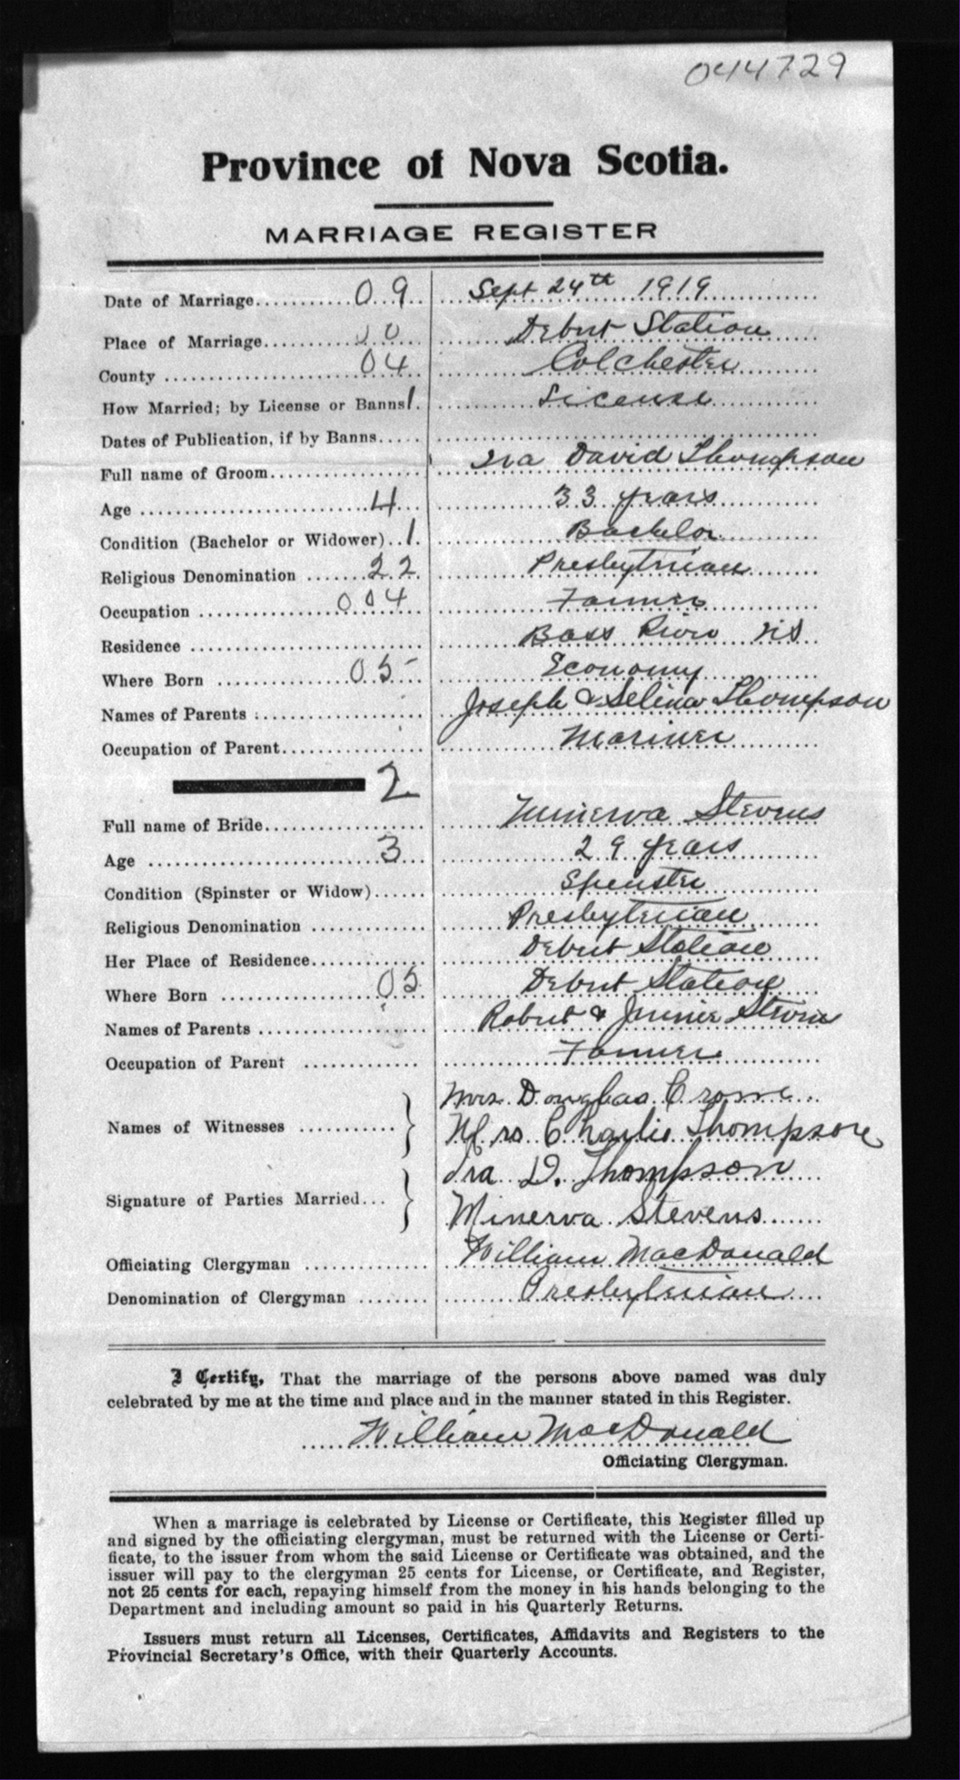 044729
Province of Nova Scotia.
MARRIAGE REGISTER
Date of Marriage........... 09 Sept 24th 1919
Place of Marriage........... 00 Debert Station
County .................... 04 Colchester
How Married; by License or Banns 1 License
Dates of Publication, if by Banns.....
Full name of Groom................ Ira David Thompson
Age ........................ 4 33 years
Condition (Bachelor or Widower).. 1 Bachelor
Religious Denomination ...... 22 Presbyterian
Occupation .............. 004 Farmer
Residence ........................ Bass River NS
Where Born ............. 05 Economy
Names of Parents .................. Joseph & Selina Thompson
Occupation of Parent............... Mariner
2
Full name of Bride................. Minerva Stevens
Age ........................ 3 29 years
Condition (Spinster or Widow)...... Spinster
Religious Denomination ............ Presbyterian
Her Place of Residence............. Debert Station
Where Born ................ 05 Debert Station
Names of Parents .................. Robert & Jennie Stevens
Occupation of Parent ............. Farmer
Mrs. Douglas Crowe
Names of Witnesses ........... } Mrs Charlie Thompson
Ira D. Thompson
Signature of Parties Married... } Minerva Stevens
Officiating Clergyman ............. William MacDonald
Denomination of Clergyman ........ Presbyterian
I Certify, That the marriage of the persons above named was duly
celebrated by me at the time and place and in the manner stated in this Register.
William MacDonald
Officiating Clergyman.
When a marriage is celebrated by License or Certificate, this Register filled up
and signed by the officiating clergyman, must be returned with the License or Certi-
ficate, to the issuer from whom the said License or Certificate was obtained, and the
issuer will pay to the clergyman 25 cents for License, or Certificate, and Register,
not 25 cents for each, repaying himself from the money in his hands belonging to the
Department and including amount so paid in his Quarterly Returns.
Issuers must return all Licenses, Certificates, Affidavits and Registers to the
Provincial Secretary's Office, with their Quarterly Accounts.